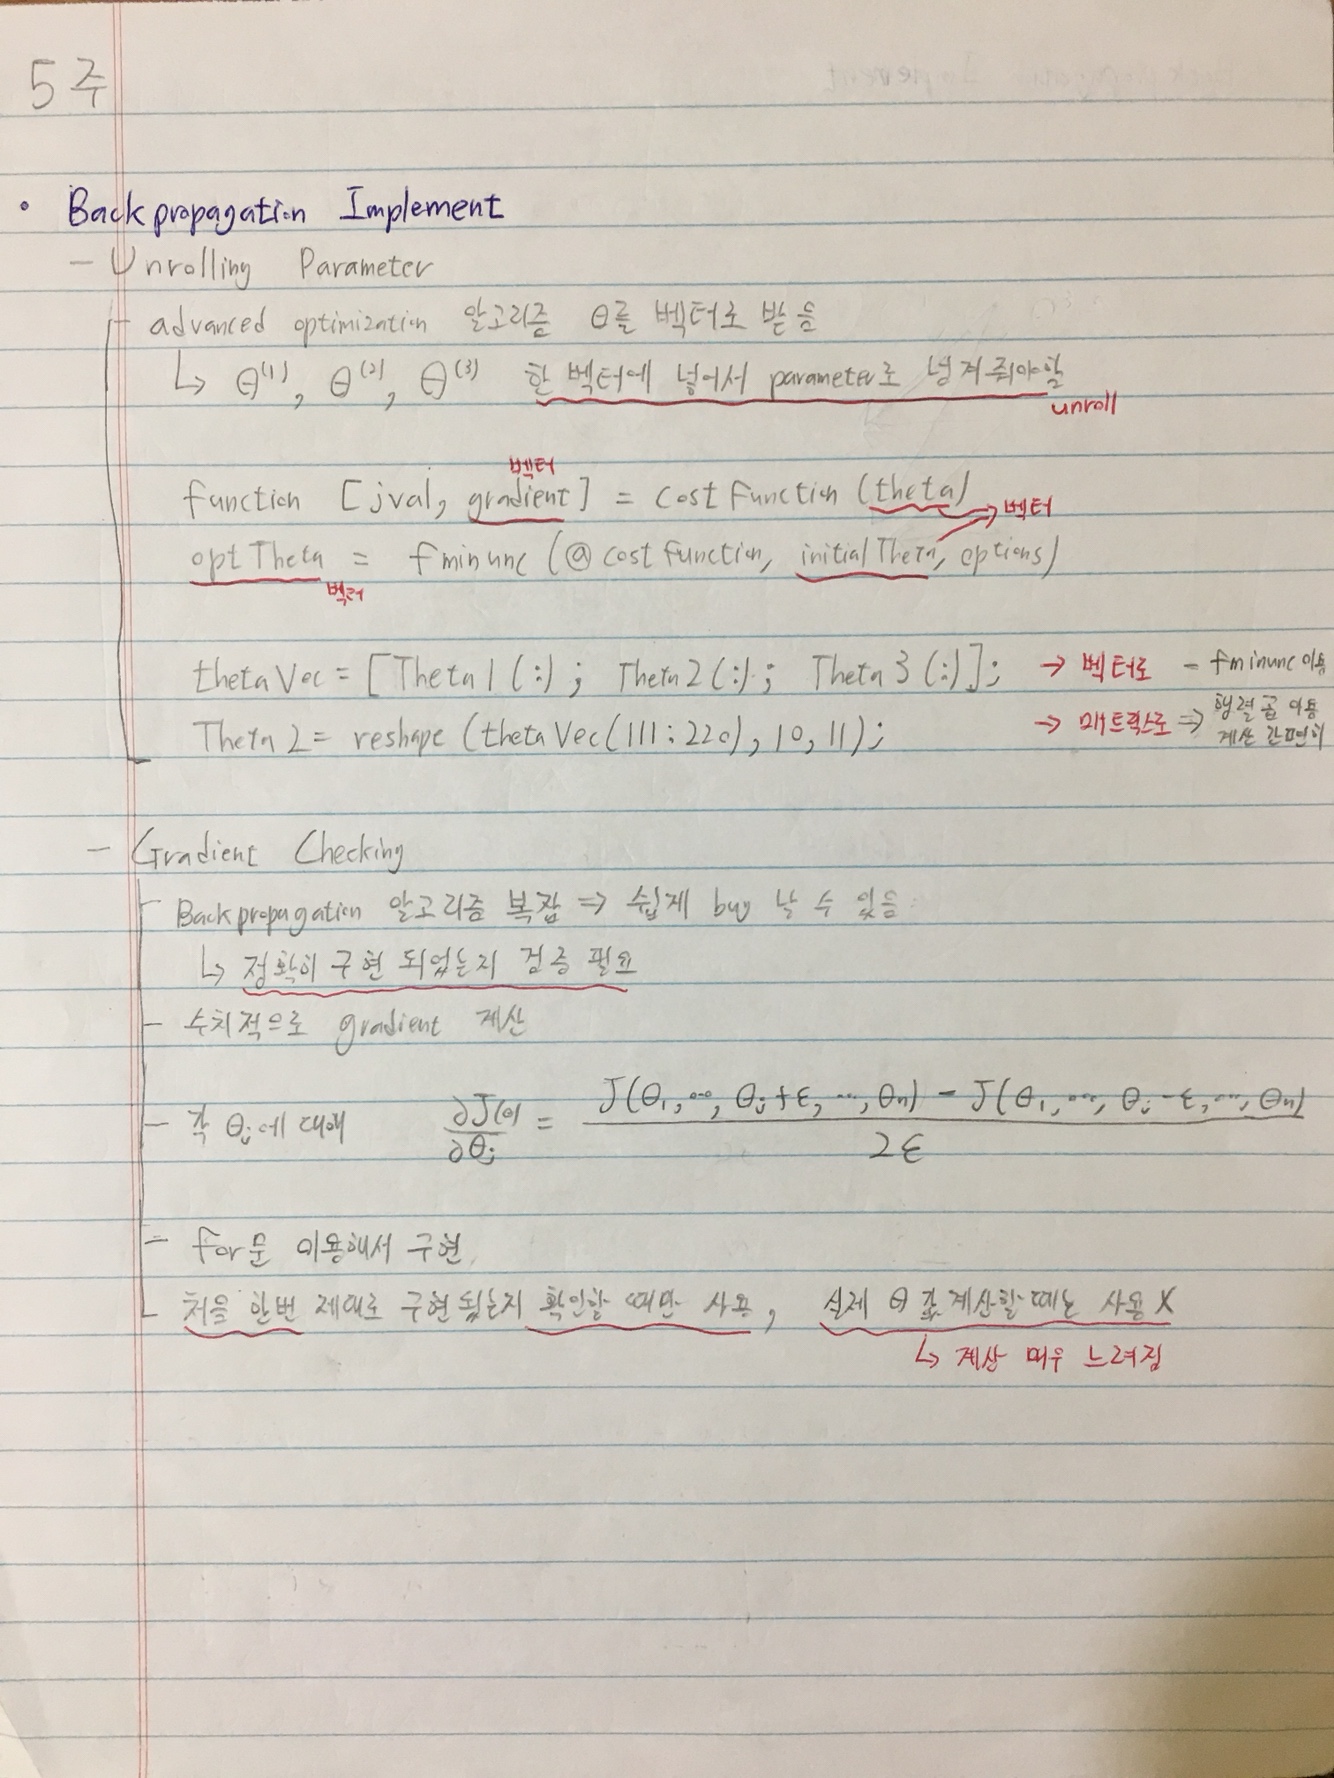 5주
• Backpropagation Implement
- Unrolling Parameter
- advanced optimization 알고리즘 θ를 벡터로 받음
↳ Θ⁽¹⁾, Θ⁽²⁾, Θ⁽³⁾ 한 벡터에 넣어서 parameter로 넘겨줘야함
unroll
벡터
function [jval, gradient] = costFunction (theta)
→ 벡터
optTheta = fminunc (@costFunction, initialTheta, options)
벡터
thetaVec = [Theta1(:); Theta2(:); Theta3(:)]; → 벡터로 - fminunc 이용
Theta2 = reshape (thetaVec(111:220), 10, 11); → 매트릭스로 ⇒ 행렬곱 이용
계산 간편히
- Gradient Checking
- Backpropagation 알고리즘 복잡 ⇒ 쉽게 bug 날 수 있음
↳ 정확히 구현 되었는지 검증 필요
- 수치적으로 gradient 계산
- 각 θⱼ에 대해 ∂J(θ)/∂θⱼ = (J(θ₁, ..., θⱼ+ε, ..., θn) - J(θ₁, ..., θⱼ-ε, ..., θn)) / 2ε
- for문 이용해서 구현
- 처음 한번 제대로 구현됬는지 확인할 때만 사용, 실제 θ 값 계산할 때는 사용 X
↳ 계산 매우 느려짐